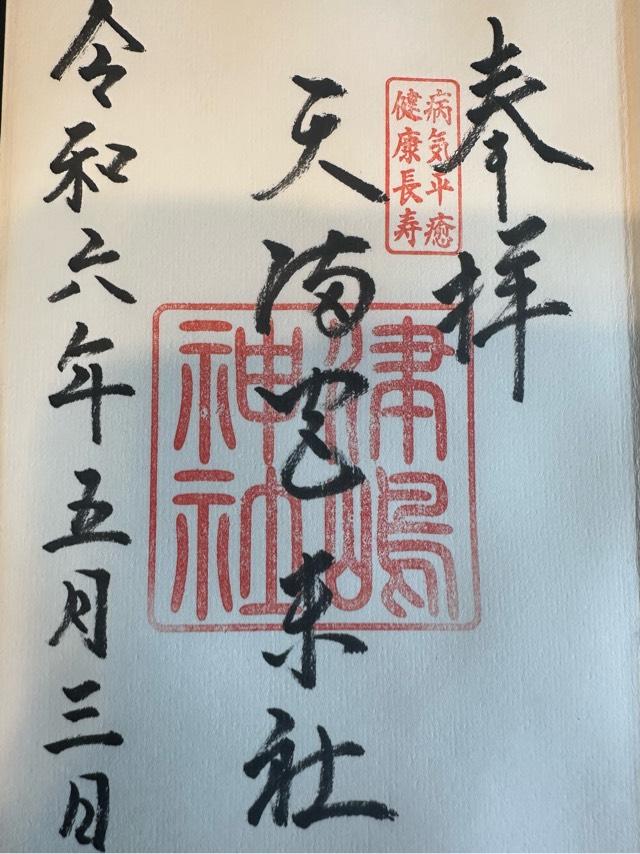 奉拝
病気平癒
健康長寿
天満宮末社
津嶋
神社
令和六年五月三日